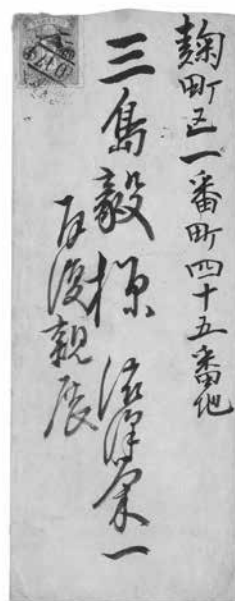 麹町区一番町四十五番地
三島毅様
渋沢栄一
拝復親展